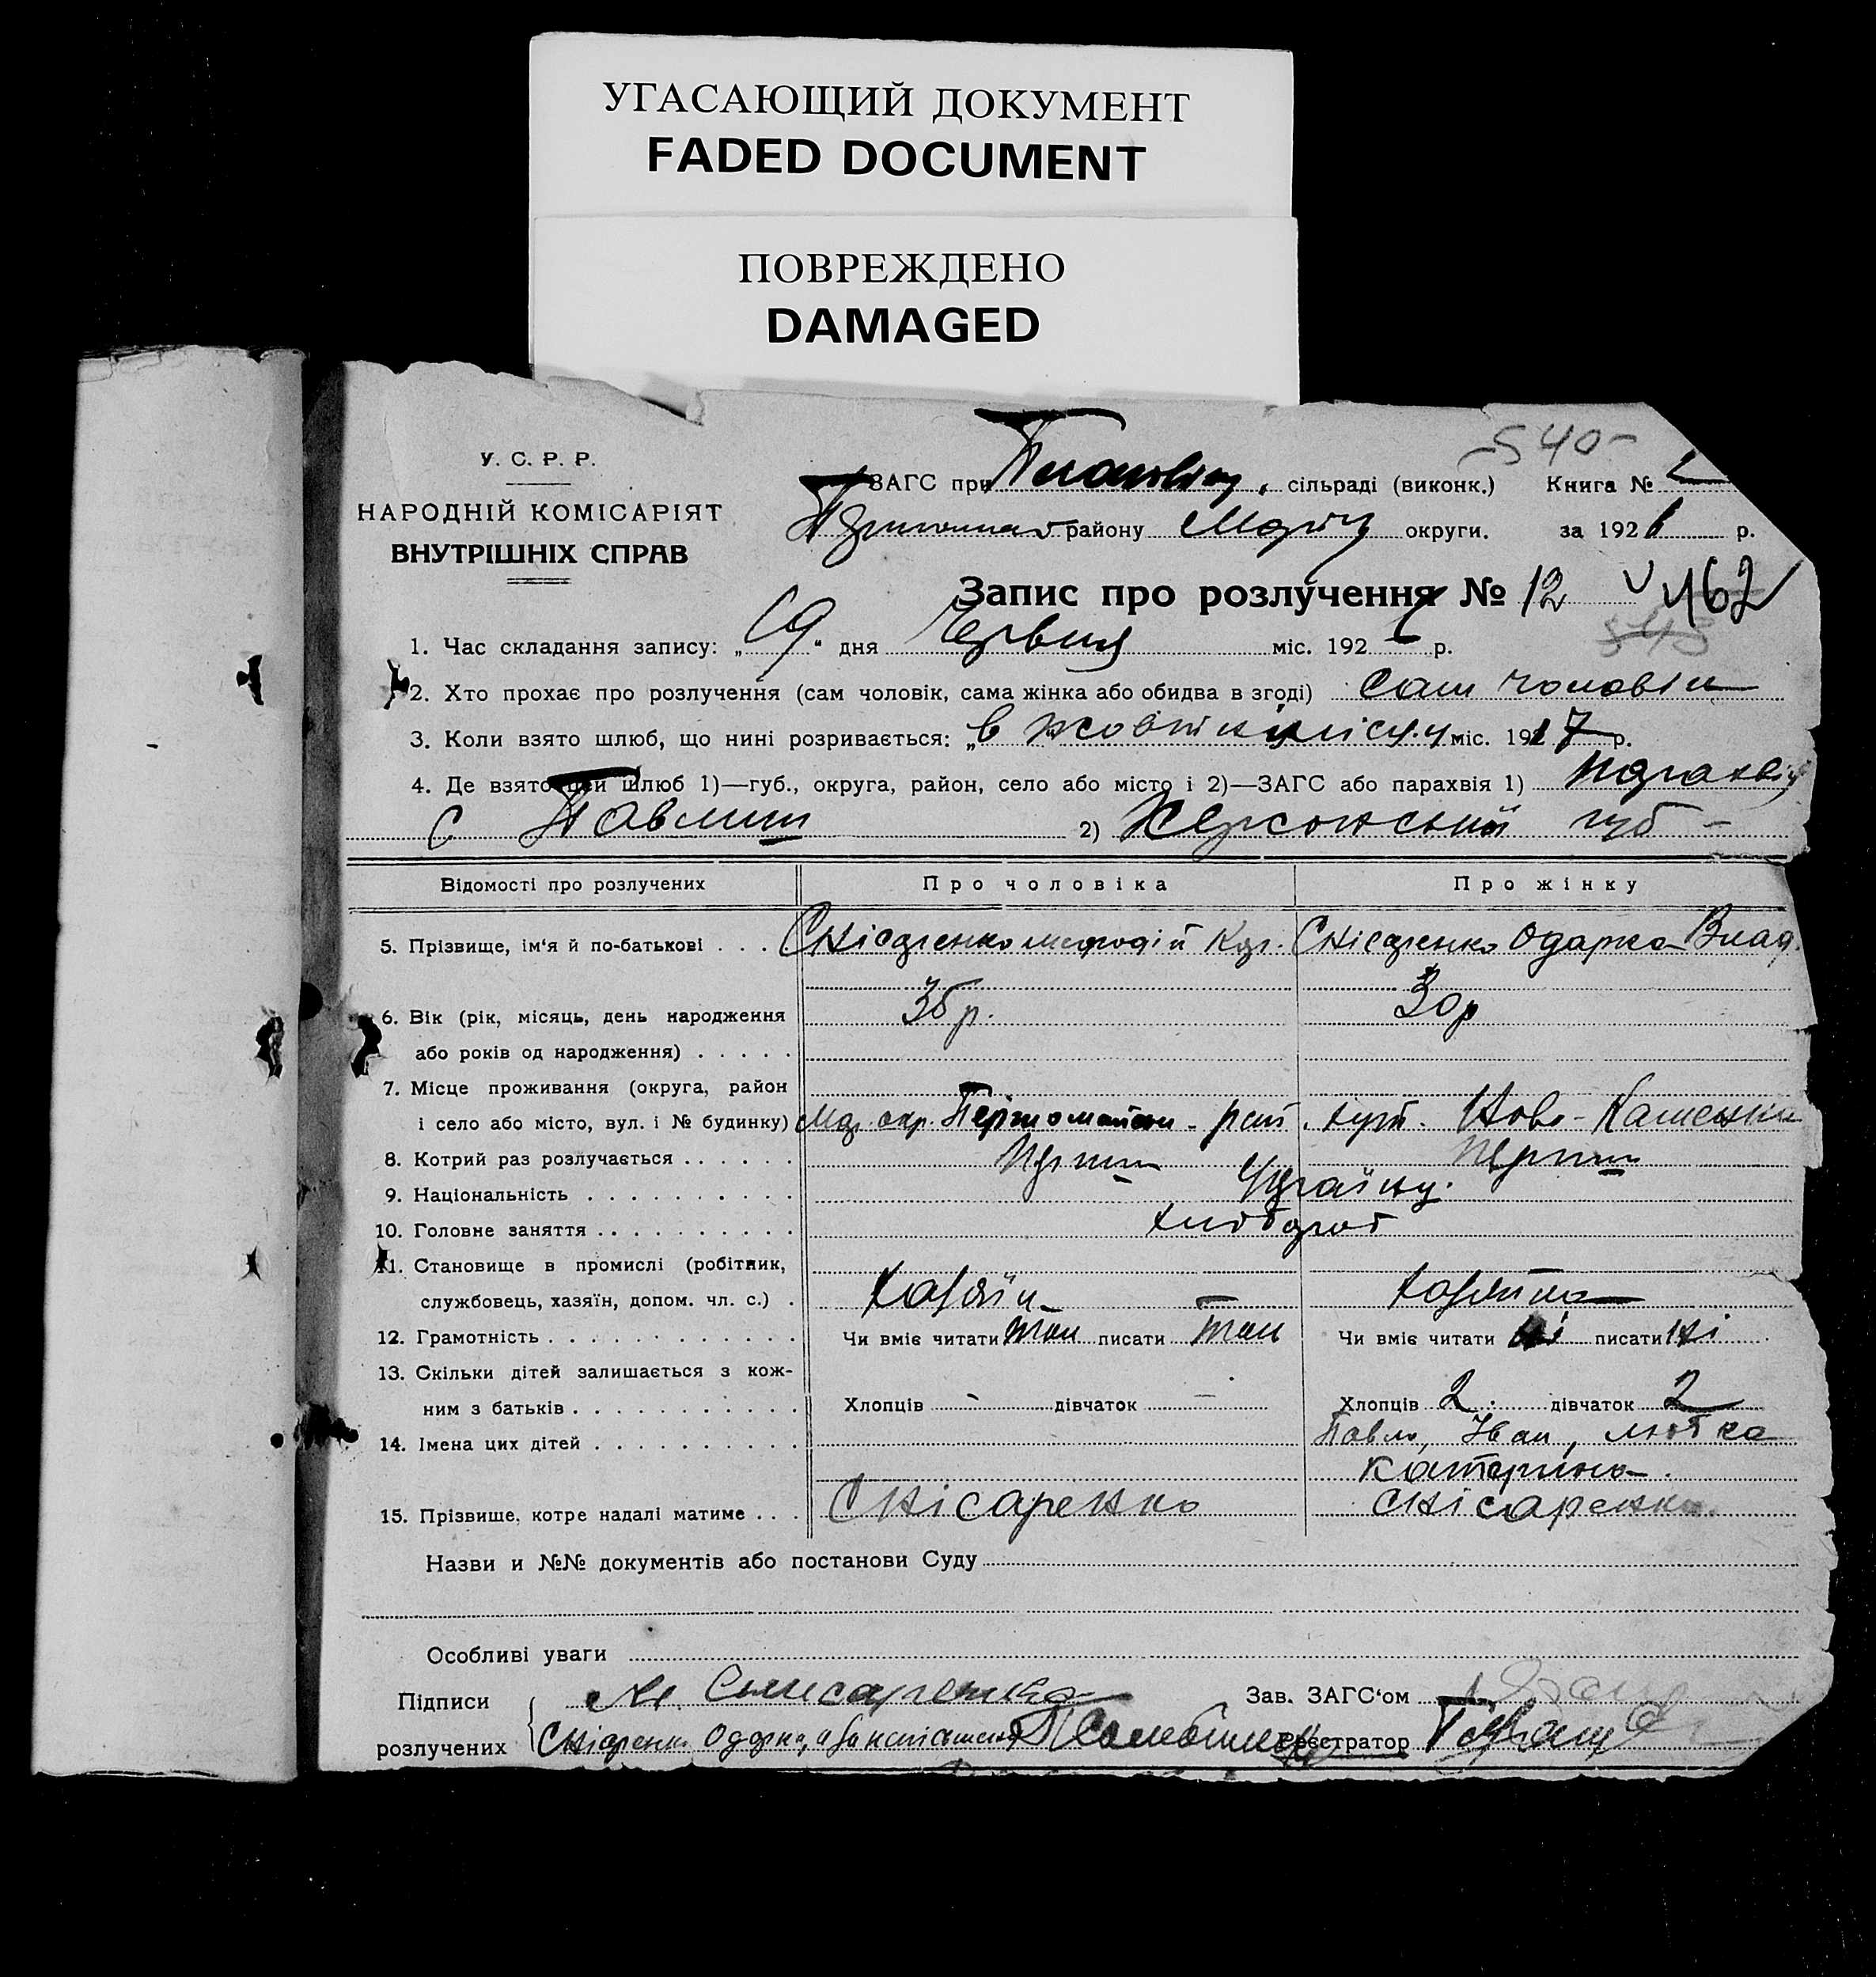 УГАСАЮЩИЙ ДОКУМЕНТ
FADED DOCUMENT
ПОВРЕЖДЕНО
DAMAGED
-540-
У. С. Р. Р.
НАРОДНІЙ КОМІСАРІЯТ
ВНУТРІШНІХ СПРАВ
ЗАГС при сільраді (виконк.) Книга №
району округи. за 1926 р.
Запис про розлучення № 12 462
1. Час складання запису: „19“ дня Червня міс. 192 р.
2. Хто прохає про розлучення (сам чоловік, сама жінка або обидва в згоді) сам чоловік
3. Коли взято шлюб, що нині розривається: „в жовтні місяці міс. 1917 р.
4. Де взято цей шлюб 1)—губ., округа, район, село або місто і 2)—ЗАГС або парахвія 1) парахвія
с Павлиш 2) Херсонської губ -
Відомості про розлучених Про чоловіка Про жінку
5. Прізвище, ім'я й по-батькові . . . . Снісаренко Мефодій Снісаренко Одарка Влад.
6. Вік (рік, місяць, день народження 36 р. 30 р
або років од народження) . . . . .
7. Місце проживання (округа, район
і село або місто, вул. і № будинку) окр. Первомайськ - рай. хут. Ново-Каменка
8. Котрий раз розлучається . . . . . . Перший Перший
9. Національність . . . . . . . . . . Україн.
10. Головне заняття . . . . . . . . . . хлібороб
11. Становище в промислі (робітник,
службовець, хазяїн, допом. чл. с.) . хазяїн хазяйка
12. Грамотність . . . . . . . . . . . . Чи вміє читати так писати так Чи вміє читати ні писати ні
13. Скільки дітей залишається з кож-
ним з батьків . . . . . . . . . . . Хлопців - дівчаток - Хлопців 2 дівчаток 2
14. Імена цих дітей . . . . . . . . . . Павло, Іван,
Катерина.
15. Прізвище, котре надалі матиме . . . Снісаренко Снісаренко
Назви и №№ документів або постанови Суду
Особливі уваги
Підписи Зав. ЗАГС'ом
розлучених Одарка, Реєстратор